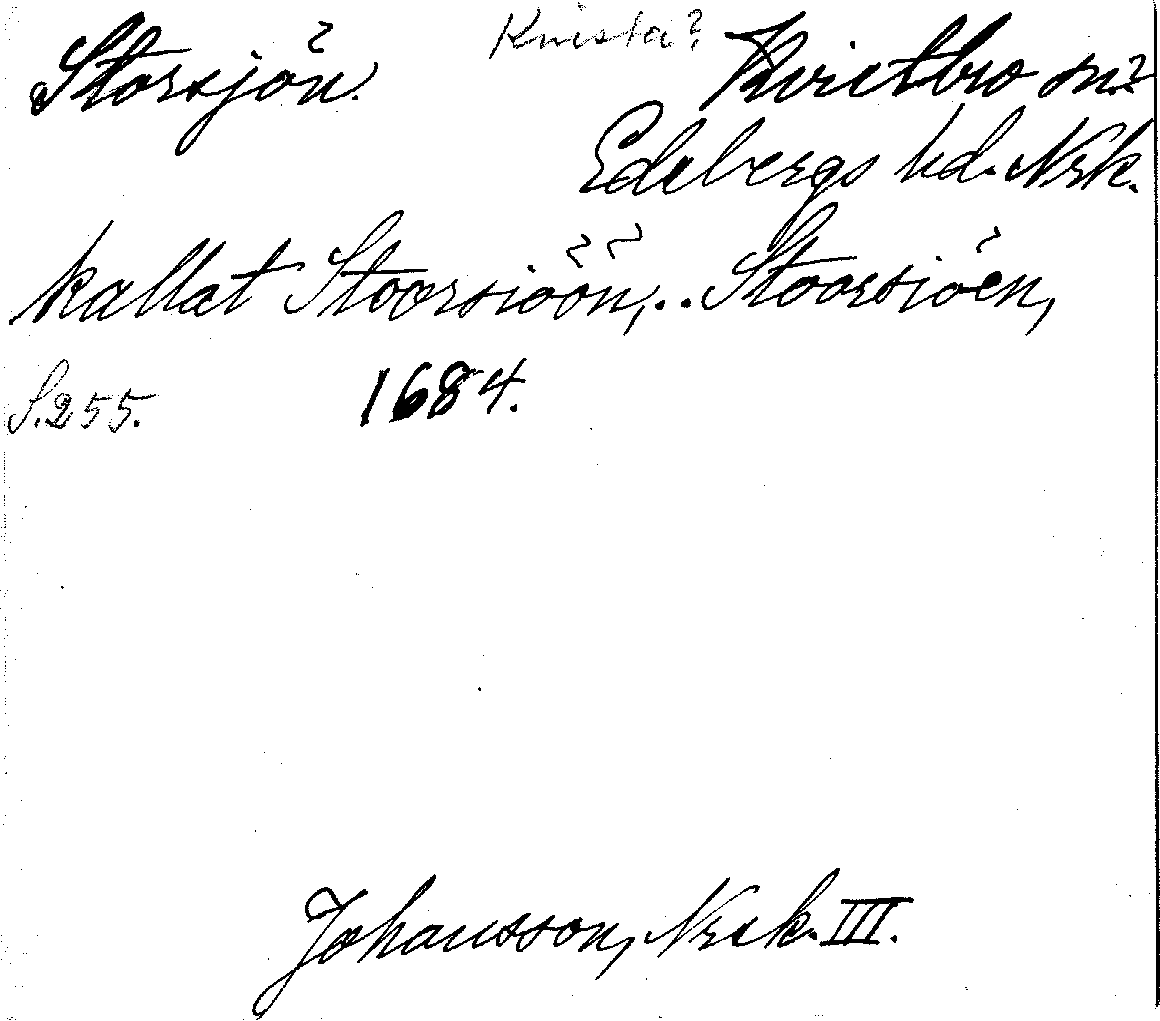 Storsjön. Knista? Kvistbro sn?
Edsbergs hd. Nrk.
kallat Stoorsiöön,.. Stoorsiöen,
S.255. 1684.
Johansson, Nrk. III.